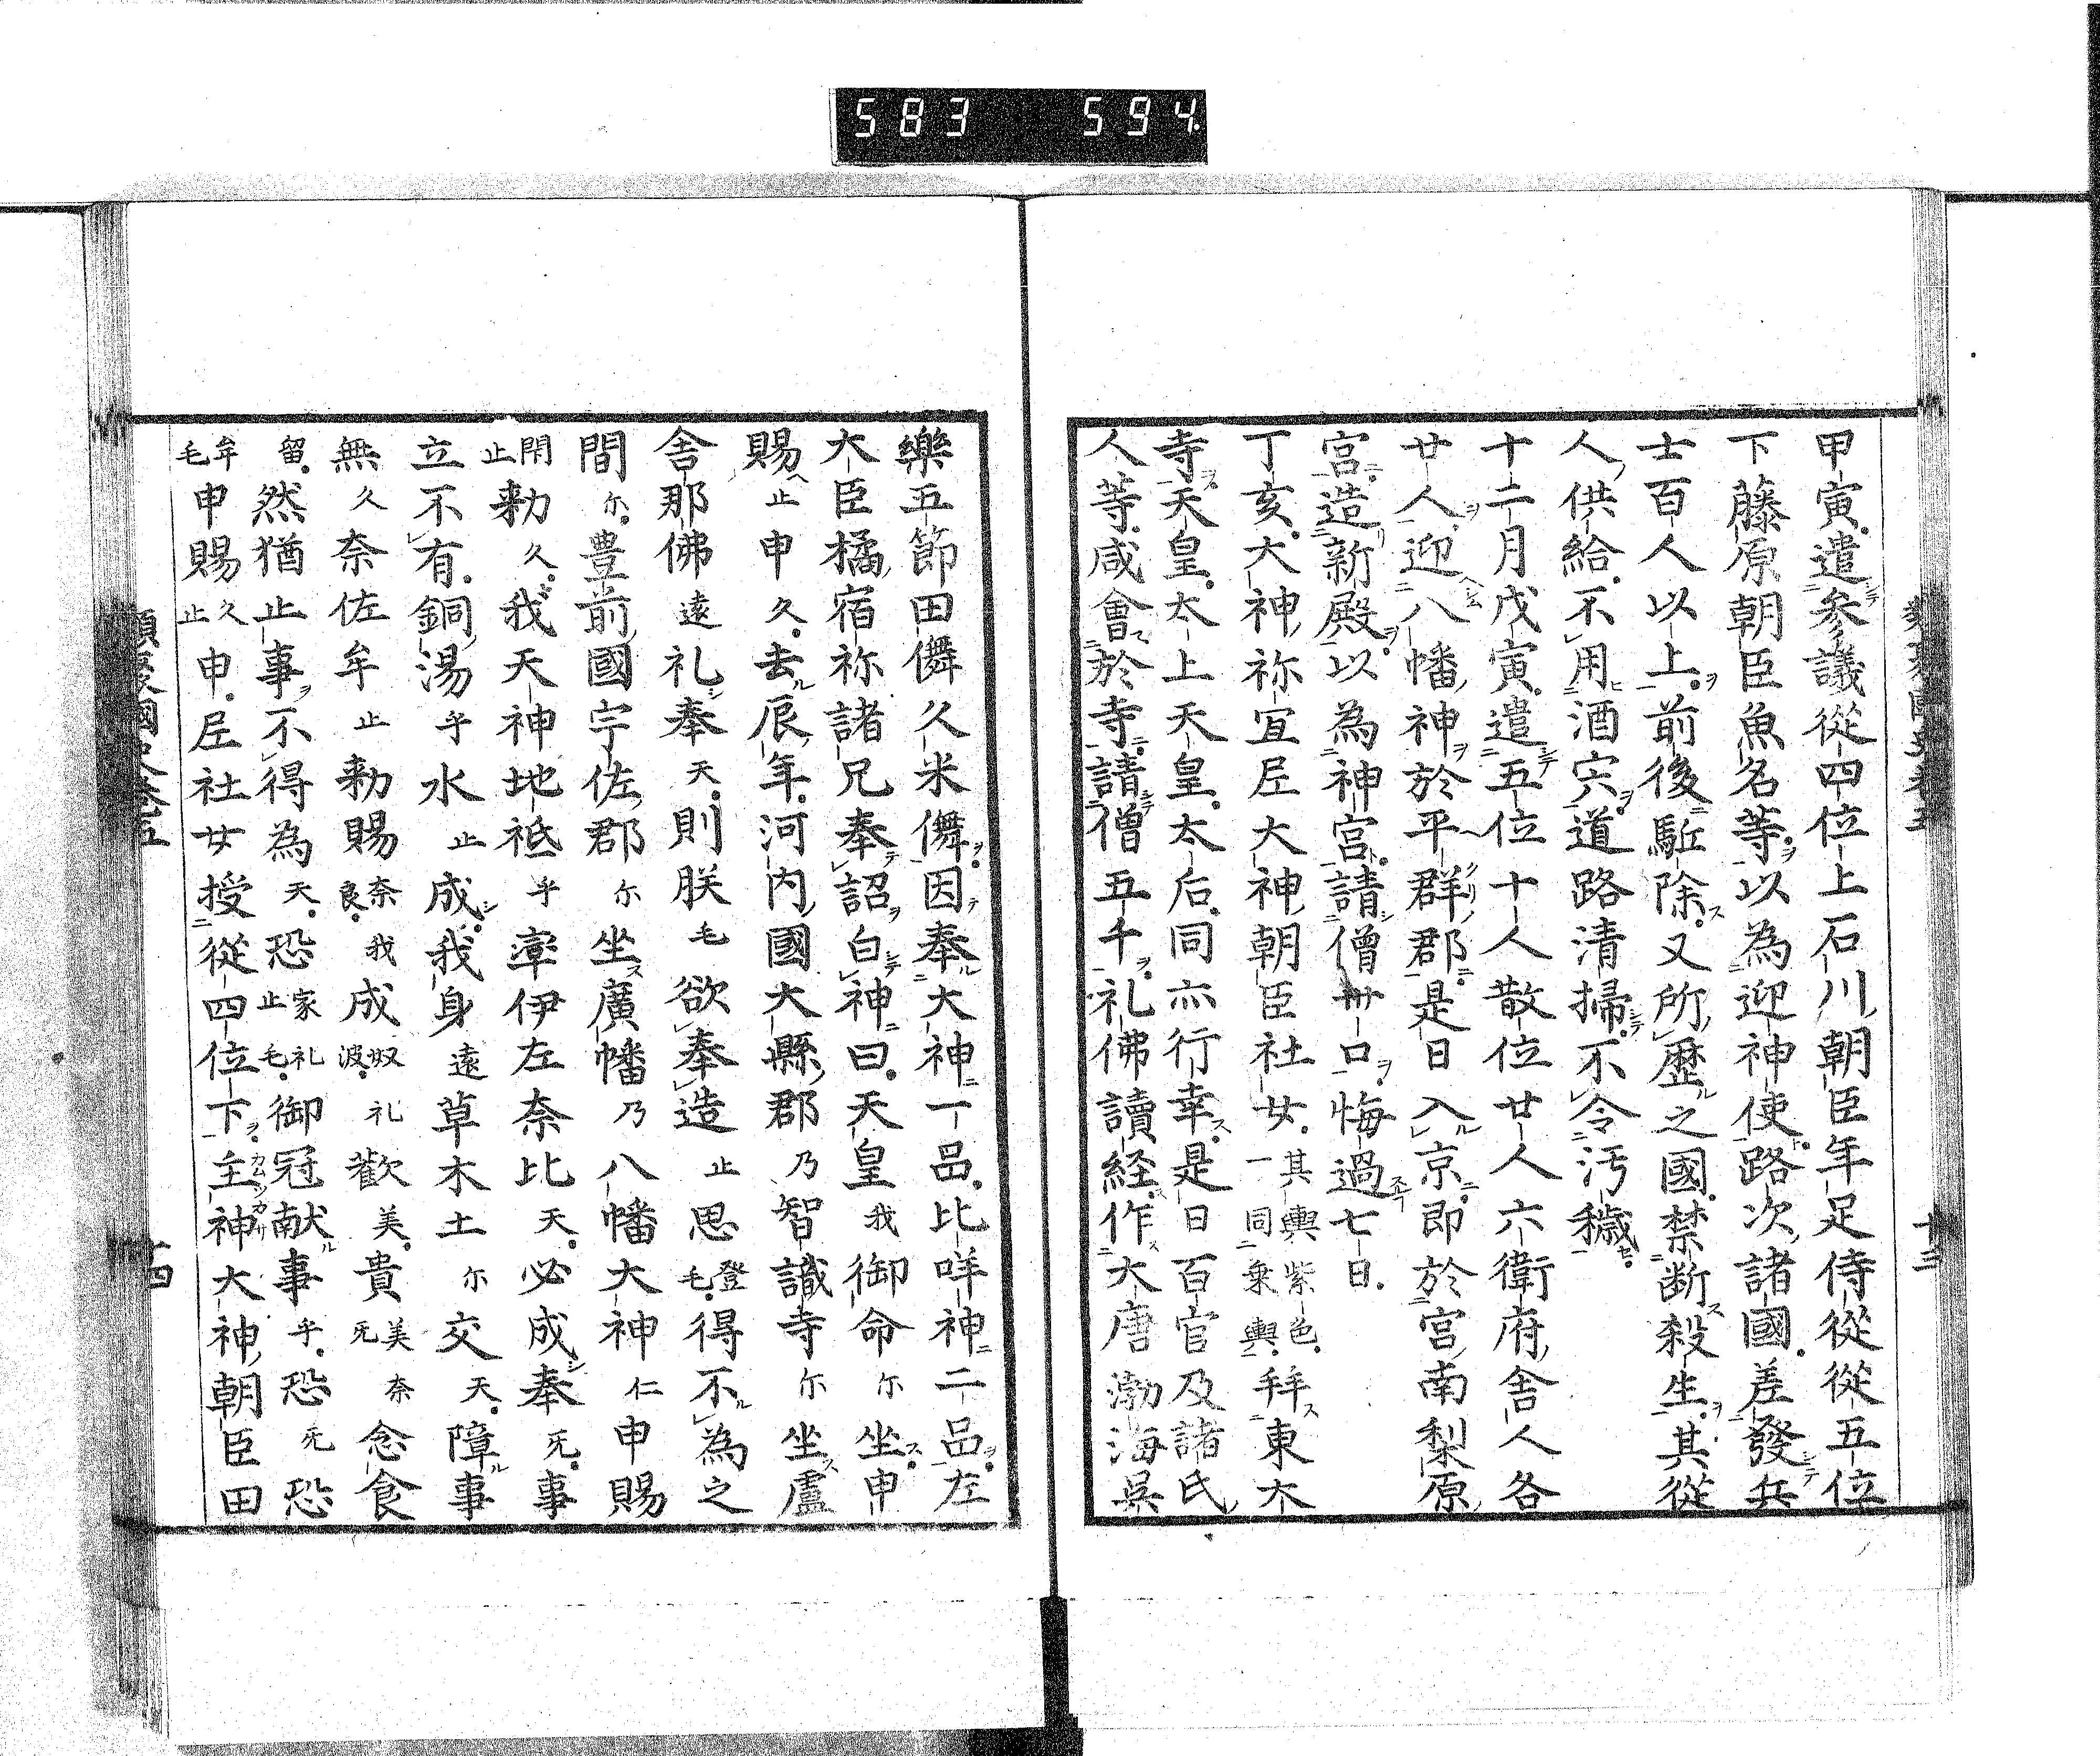 583 594
甲寅遣參議從四位上石川朝臣年足侍從從五位
下藤原朝臣魚名等以為迎神使路次諸國差發兵
士百人以上前後駈除又所歴之國禁断殺生其從
人供給不用酒宍道路清掃不令汚穢
十二月戊寅遣五位十人散位廿人六衛府舎人各
廿人迎八幡神於平群郡是日入京即於宮南梨原
宮造新殿以為神宮請僧卌口悔過七日
丁亥大神祢宜尼大神朝臣社女其輿紫色一同乗輿拜東大
寺天皇太上天皇太后同亦行幸是日百官及諸氏
人等咸會於寺請僧五千礼佛讀経作大唐渤海呉
樂五節田儛久米儛因奉大神一品比咩神二品左
大臣橘宿祢諸兄奉詔白神曰天皇我御命尓坐申
賜止申久去辰年河内國大縣郡乃智識寺尓坐盧
舎那佛遠礼奉天則朕毛欲奉造止思登毛得不為之
間尓豊前國宇佐郡尓坐廣幡乃八幡大神仁申賜
閇止勅久我天神地祇乎率伊左奈比天必成奉无事
立不有銅湯乎水止成我身遠草木土尓交天障事
無久奈佐牟止勅賜奈良我成奴波礼歡美貴美无奈念食
留然猶止事不得為天恐家止礼毛御冠献事乎恐无恐
牟毛申賜久止申尼社女授從四位下主神大神朝臣田